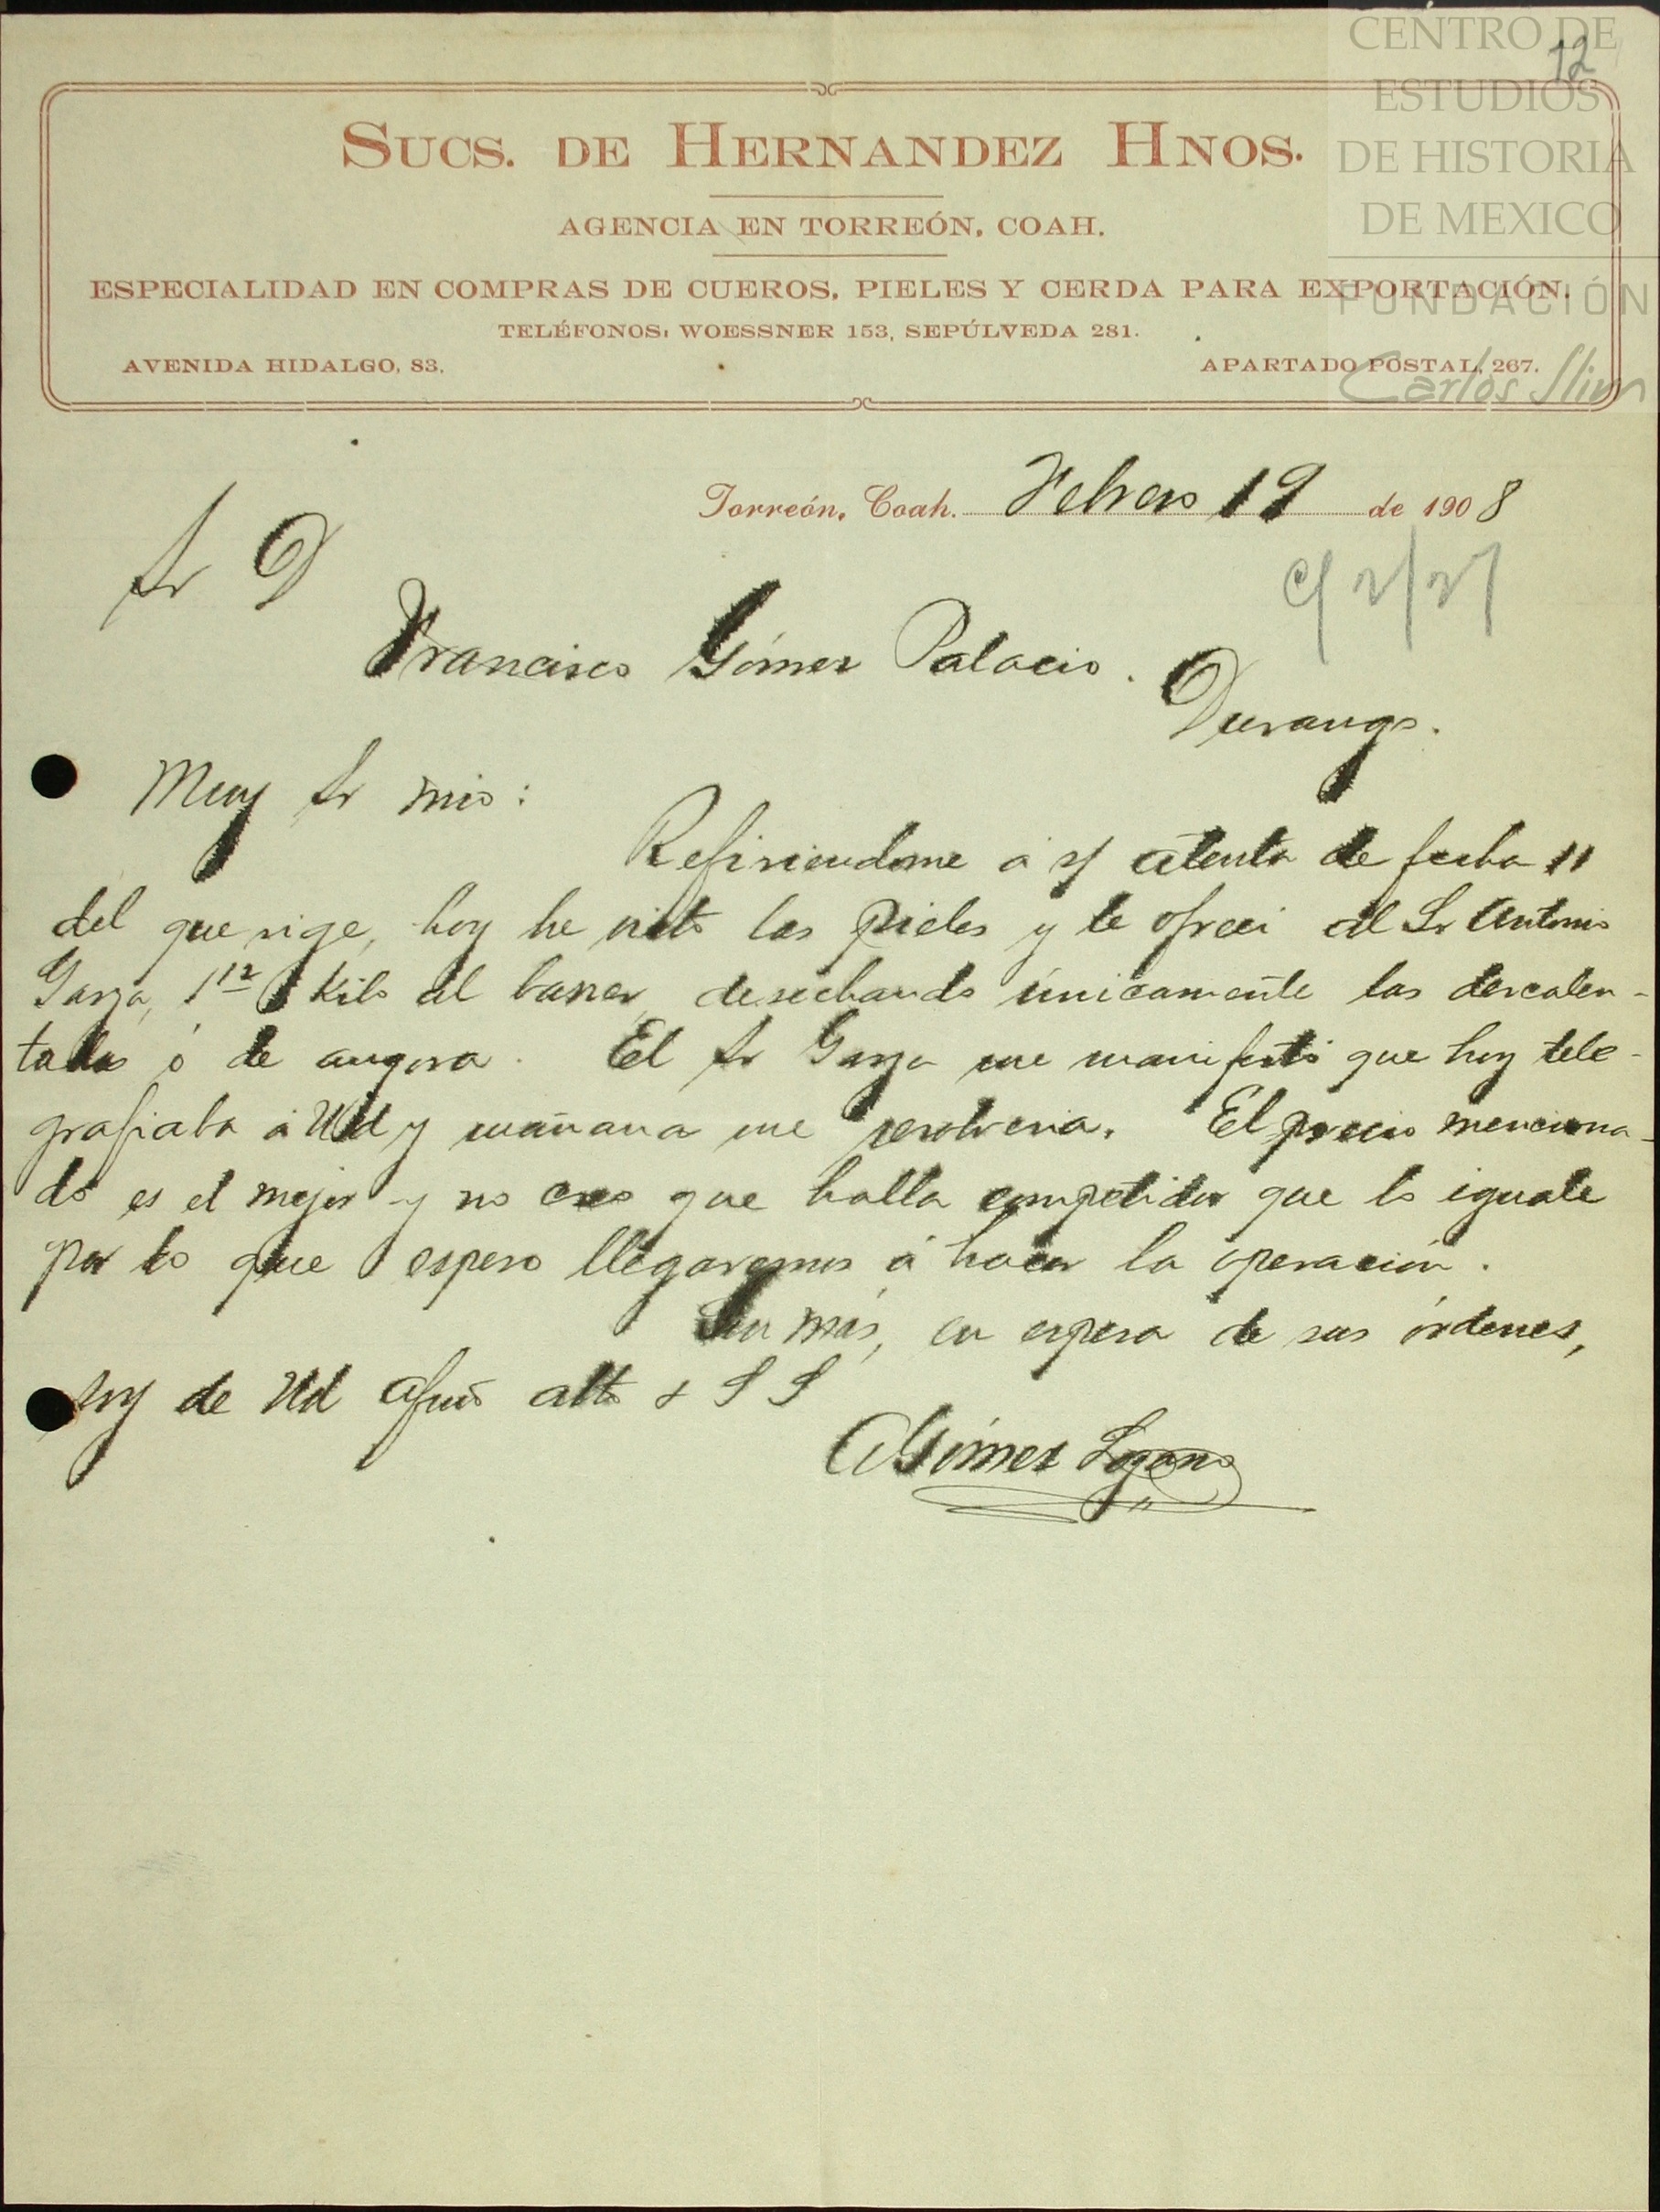 CENTRO DE
ESTUDIOS
DE HISTORIA
DE MEXICO
FUNDACIÓN
Carlos Slim
12
SUCS. DE HERNANDEZ HNOS.
AGENCIA EN TORREÓN, COAH.
ESPECIALIDAD EN COMPRAS DE CUEROS, PIELES Y CERDA PARA EXPORTACIÓN.
TELÉFONOS: WOESSNER 153, SEPÚLVEDA 281.
AVENIDA HIDALGO, 83. APARTADO POSTAL, 267.
Torreón, Coah. Febrero 19 de 1908
Sr D
C/ 2/27
Francisco Gómez Palacio.
Durango.
Muy Sr mio:
Refiriendome á s/ atenta de fecha 11
del que rige, hoy he visto las pieles y le ofreci al Sr Antonio
Garza, 1 12 kilo al barrer, desechando únicamente las descalen-
tadas ó de angora. El Sr Garza me manifestó que hoy tele-
grafiaba á Ud y mañana me resolveria. El precio menciona-
do es el mejor y no creo que halla competidor que lo iguale
por lo que espero llegaremos á hacer la operación.
Sin más, en espera de sus órdenes,
soy de Ud afmo atto y S S
A Gómez Lozano